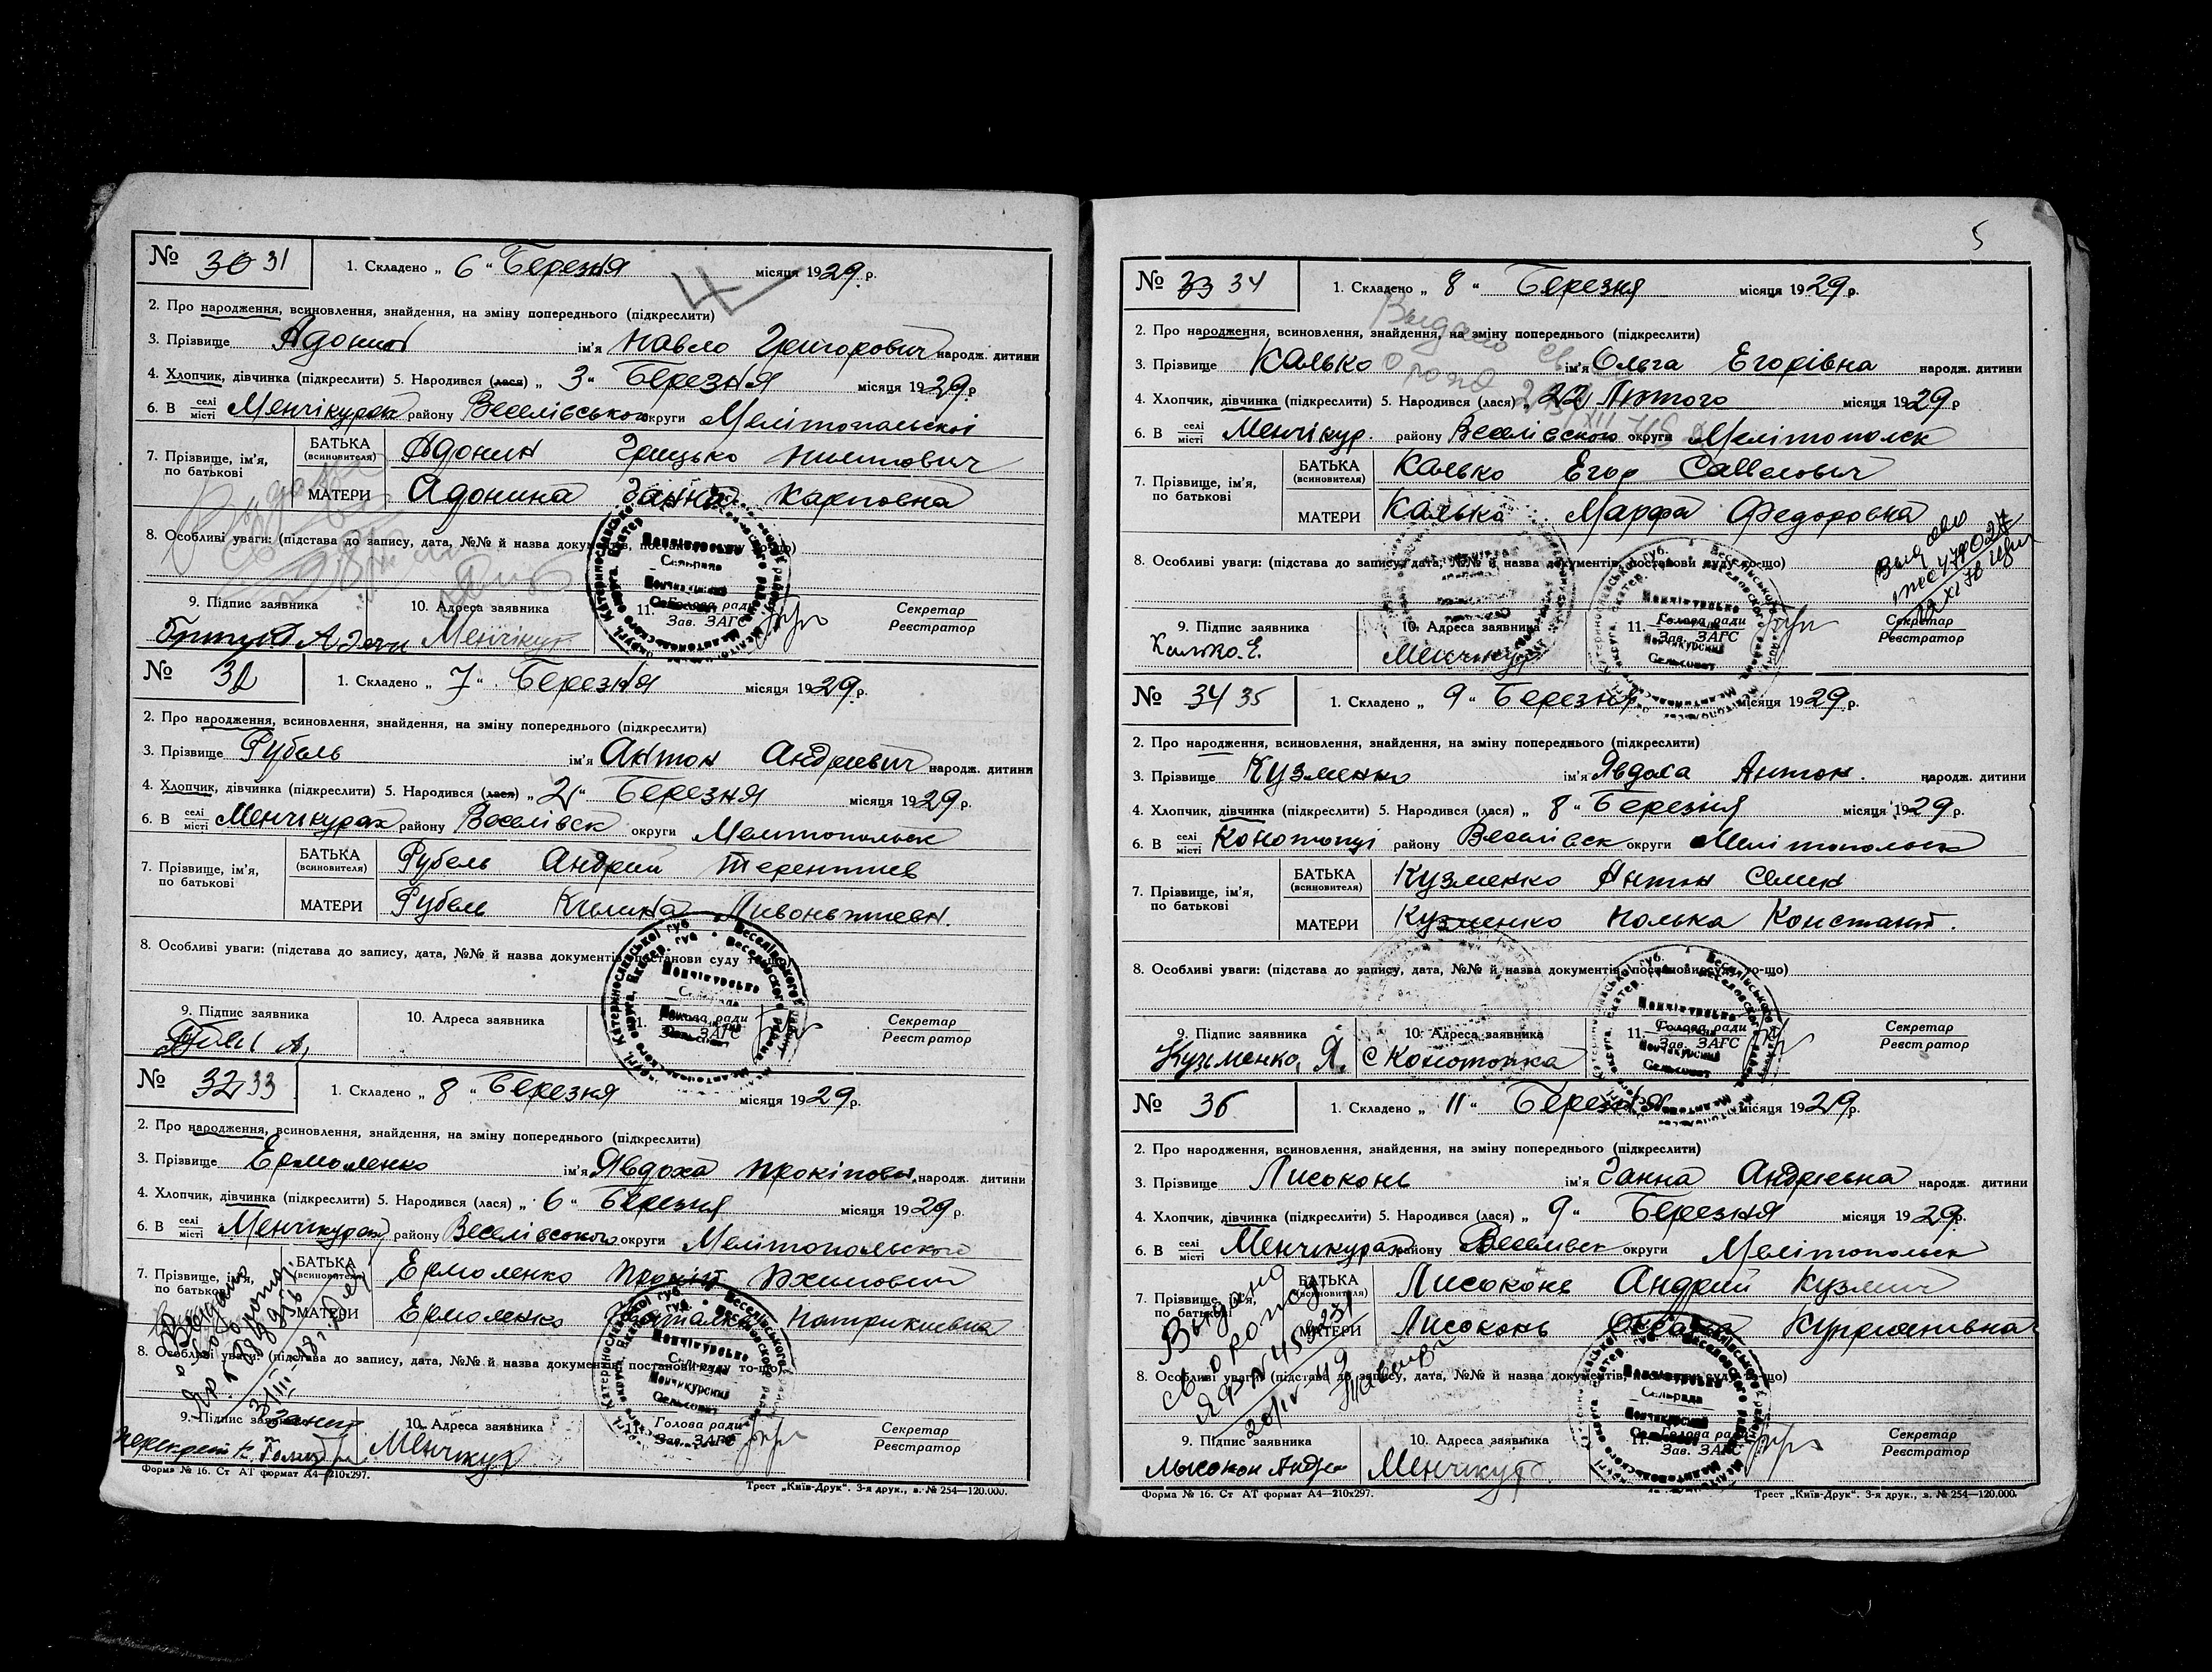 № 30 31
1. Складено „ 6 “ Березня місяця 1929 р.
2. Про народження, всиновлення, знайдення, на зміну попереднього (підкреслити)
3. Прізвище Адонин ім'я Павло Григорович народж. дитини
4. Хлопчик, дівчинка (підкреслити) 5. Народився (лася) „ 3 “ Березня місяця 1929 р.
6. В селі місті Менчікурах району Веселівського округи Мелітопальскої
7. Прізвище, ім'я, по батькові
БАТЬКА (всиновителя) Адонин Грицько
МАТЕРИ Адонина Ганна Карповна
8. Особливі уваги: (підстава до запису, дата, №№ й назва документів, постанови суду то-що)
9. Підпис заявника
10. Адреса заявника Менчікур
11. Голова ради Зав. ЗАГС
Секретар Реєстратор
№ 32
1. Складено „ 7 “ Березня місяця 1929 р.
2. Про народження, всиновлення, знайдення, на зміну попереднього (підкреслити)
3. Прізвище Рубель ім'я Антон Андріевич народж. дитини
4. Хлопчик, дівчинка (підкреслити) 5. Народився (лася) „ 2 “ Березня місяця 1929 р.
6. В селі місті Менчікурах району Веселівск округи Мелитопольск
7. Прізвище, ім'я, по батькові
БАТЬКА (всиновителя) Рубель Андрий Терентиев
МАТЕРИ Рубель Килина
8. Особливі уваги: (підстава до запису, дата, №№ й назва документів, постанови суду то-що)
9. Підпис заявника
10. Адреса заявника
11. Голова ради Зав. ЗАГС
Секретар Реєстратор
№ 32 33
1. Складено „ 8 “ Березня місяця 1929 р.
2. Про народження, всиновлення, знайдення, на зміну попереднього (підкреслити)
3. Прізвище Ермоленко ім'я Явдоха Прокіповн. народж. дитини
4. Хлопчик, дівчинка (підкреслити) 5. Народився (лася) „ 6 “ Березня місяця 1929 р.
6. В селі місті Менчікурах району Веселівского округи Мелітопольского
7. Прізвище, ім'я, по батькові
БАТЬКА (всиновителя) Ермоленко Прокіп
МАТЕРИ Ермоленко Наталка Патрикиевна
8. Особливі уваги: (підстава до запису, дата, №№ й назва документів, постанови суду то-що)
9. Підпис заявника
10. Адреса заявника Менчікур
11. Голова ради Зав. ЗАГС
Секретар Реєстратор
Форма № 16. Ст АТ формат А4—210х297.
Трест „Київ-Друк“. 3-я друк., з. № 254—120.000.
5
№ 33 34
1. Складено „ 8 “ Березня місяця 1929 р.
2. Про народження, всиновлення, знайдення, на зміну попереднього (підкреслити)
3. Прізвище Калько ім'я Ольга Егорівна народж. дитини
4. Хлопчик, дівчинка (підкреслити) 5. Народився (лася) „ 22 Лютого місяця 1929 р
6. В селі місті Менчікур. району Веселівского округи Мелітополск
7. Прізвище, ім'я, по батькові
БАТЬКА (всиновителя) Калько Егор Савелович
МАТЕРИ Калько Марфа Федоровна
8. Особливі уваги: (підстава до запису, дата, №№ й назва документів, постанови суду то-що)
9. Підпис заявника Калько. Е.
10. Адреса заявника Менчикур
11. Голова ради Зав. ЗАГС
Секретар Реєстратор
№ 34 35
1. Складено „ 9 “ Березня місяця 1929 р.
2. Про народження, всиновлення, знайдення, на зміну попереднього (підкреслити)
3. Прізвище Кузменко ім'я Явдоха Антон. народж. дитини
4. Хлопчик, дівчинка (підкреслити) 5. Народився (лася) „ 8 “ Березня місяця 1929 р.
6. В селі місті Конотопці району Веселівск округи Мелітопольск
7. Прізвище, ім'я, по батькові
БАТЬКА (всиновителя) Кузменко Антон Семин
МАТЕРИ Кузменко Полька Констант.
8. Особливі уваги: (підстава до запису, дата, №№ й назва документів, постанови суду то-що)
9. Підпис заявника Кузьменко, Я.
10. Адреса заявника с Конотопка
11. Голова ради Зав. ЗАГС
Секретар Реєстратор
№ 36
1. Складено „ 11 “ Березня місяця 1929 р.
2. Про народження, всиновлення, знайдення, на зміну попереднього (підкреслити)
3. Прізвище Лисоконь ім'я Ганна Андріевна народж. дитини
4. Хлопчик, дівчинка (підкреслити) 5. Народився (лася) „ 9 “ Березня місяця 1929 р.
6. В селі місті Менчікурах району Веселивск округи Мелітопольск
7. Прізвище, ім'я, по батькові
БАТЬКА (всиновителя) Лисоконь Андрий Кузмич
МАТЕРИ Лисоконь
8. Особливі уваги: (підстава до запису, дата, №№ й назва документів, постанови суду то-що)
9. Підпис заявника
10. Адреса заявника Менчикур
11. Голова ради Зав. ЗАГС
Секретар Реєстратор
Форма № 16. Ст АТ формат А4—210х297.
Трест „Київ-Друк“. 3-я друк., з. № 254—120.000.